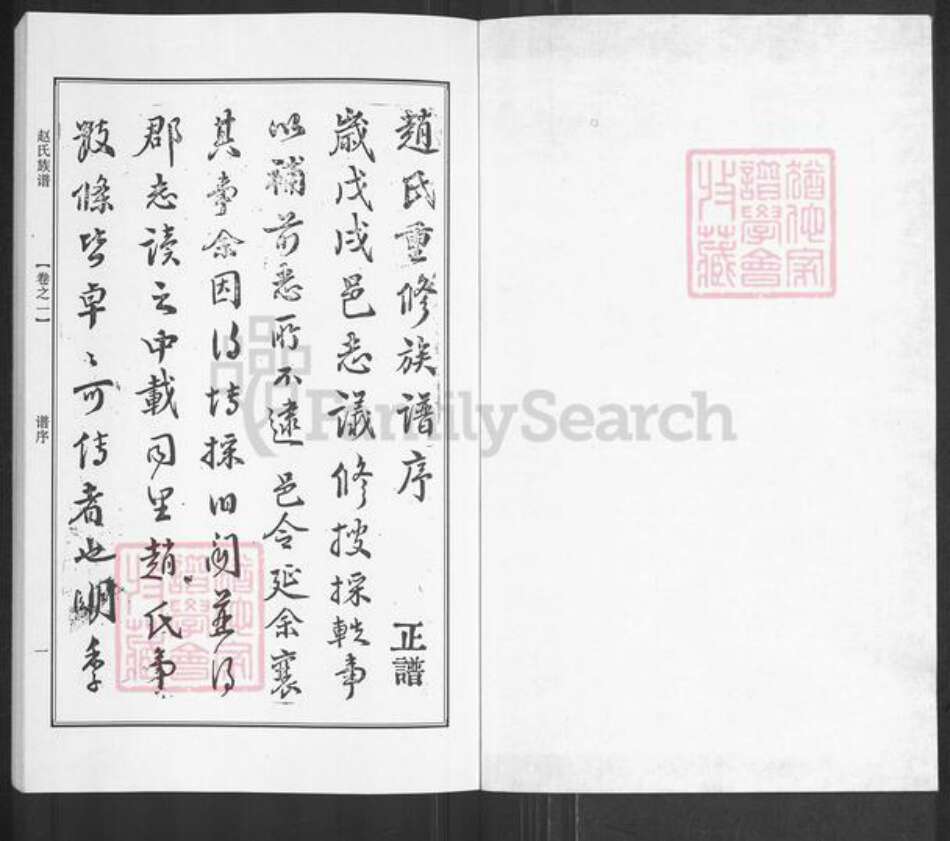 趙氏重修族譜序 正譜
歲戊戌邑志議修搜採軼事
以補前志所不逮邑令延余襄
其事余因得博採旧闻並得
郡志读之中載同里趙氏事
数條皆卓〻可传者也明季
赵氏族谱 【卷之一】 谱序 一
猶他家
譜學會
收藏
猶他家
譜學會
收藏
FamilySearch